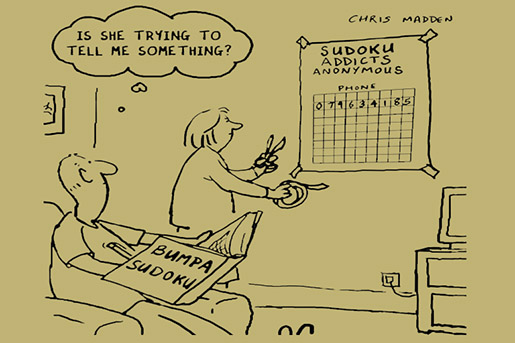 CHRIS MADDEN
IS SHE TRYING TO
TELL ME SOMETHING?
SUDOKU
ADDICTS
ANONYMOUS
PHONE
0 7 9 6 3 4 1 8 5
BUMPA
SUDOKU